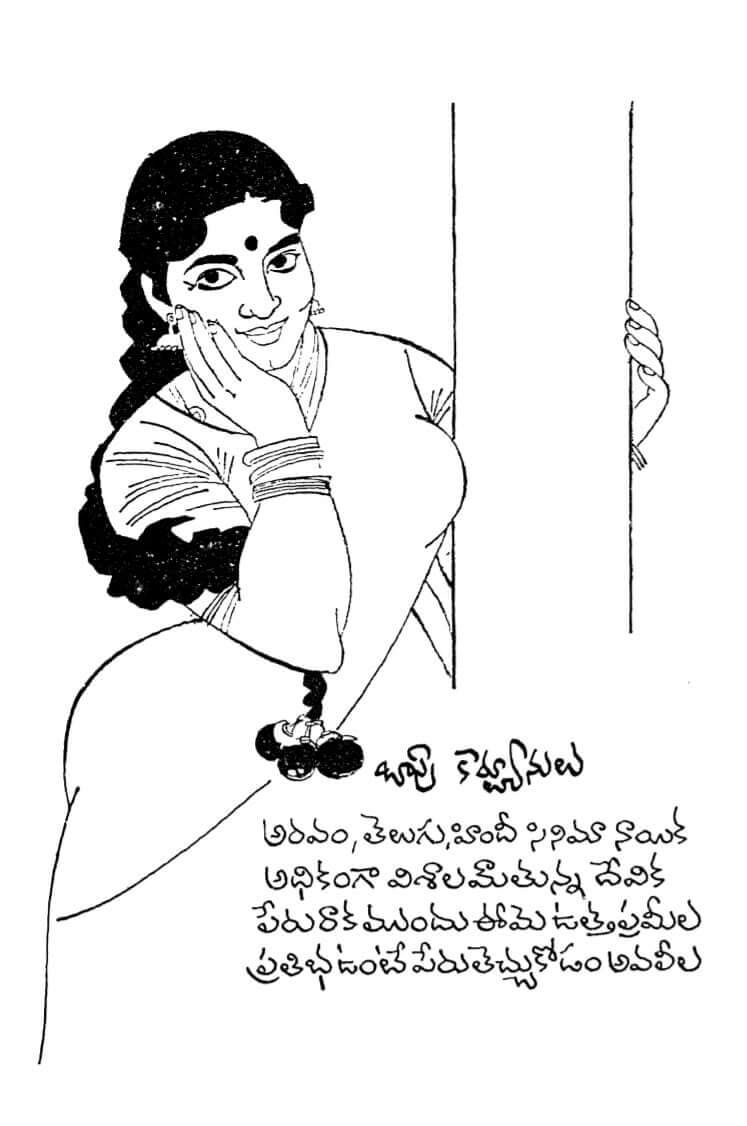 బాపు కార్టూనులు
అరవం, తెలుగు, హిందీ సినిమా నాయిక
అధికంగా విశాలమౌతున్న దేవిక
పేరు రాక ముందు ఈమె ఉత్త ప్రమీల
ప్రతిభ ఉంటే పేరు తెచ్చుకోడం అవలీల